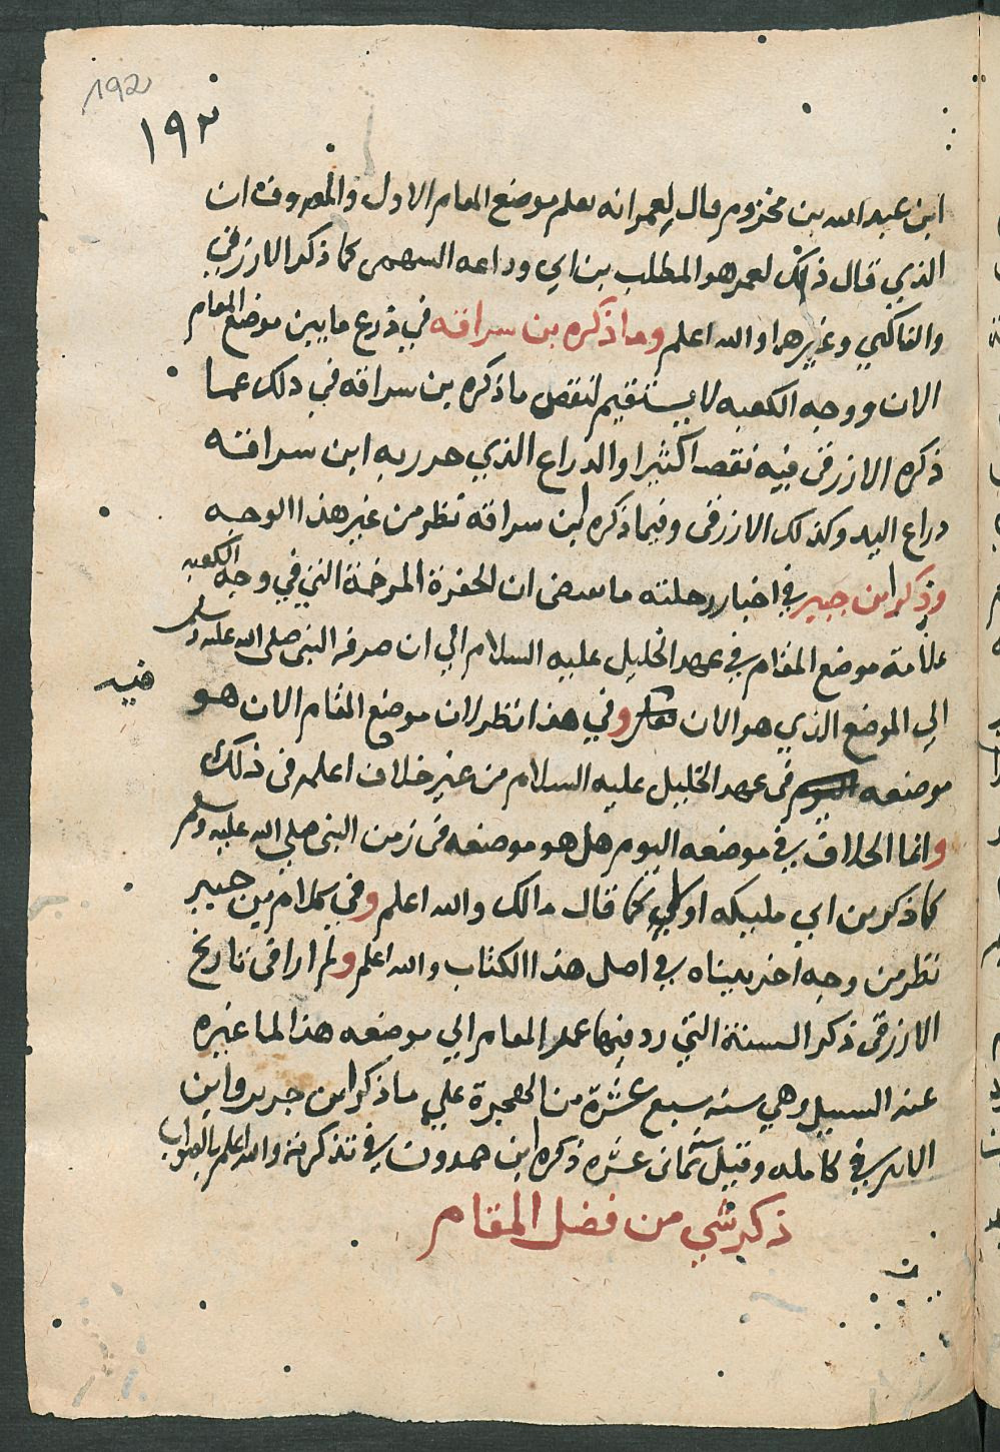 192
١٩٢
ابن عبد الله بن مخزوم قال لعمر انه يعلم موضع المقام الاول والمعروف ان
الذي قال ذلك لعمر هو المطلب بن ابي وداعه السهمي كما ذكر الازرقي
والفاكهي وغيرهما والله اعلم وما ذكره بن سراقه في ذرع ما بين موضع المقام
الان ووجه الكعبه لا يستقيم لنقص ما ذكره بن سراقه في ذلك عما
ذكره الازرقى فيه نقصا كثيرا والذراع الذي حرر به ابن سراقته
دراع اليد وكذلك الازرقى وفيما ذكره ابن سراقة نظر من غير هذا الوجه
وذكر ابن جبير في اخبار رحلته ما يقتضى ان الحفرة المرخمة التي في وجه الكعبه
علامة موضع المقام في عهد الخليل عليه السلام الي ان صرفه النبى صلى الله عليه وسلم
الى الموضع الذي هو الان وفي هذا نظر لان موضع المقام الان هو
فيه
موضعه فى عهد الخليل عليه السلام من غير خلاف اعلمه فى ذلك
وانما الخلاف في موضعه اليوم هل هو موضعه فى زمن النبى صلي الله عليه وسلم
كما ذكر بن ابي مليكه او لا كما قال مالك والله اعلم وفي كلام بن جبير
نظر من وجه اخر بيناه في اصل هذا الكتاب والله اعلم ولم ار فى تاريخ
الازرقى ذكر السنة التي رد فيها عمر المقام الي موضعه هذا لما غيره
عنه السيل وهي سنه سبع عشرة من الهجرة علي ما ذكر ابن جرير وابن
الاثير في كامله وقيل سنة ثمان عشره ذكره ابن حمدون في تذكرته والله اعلم بالصواب
ذكر شي من فضل المقام